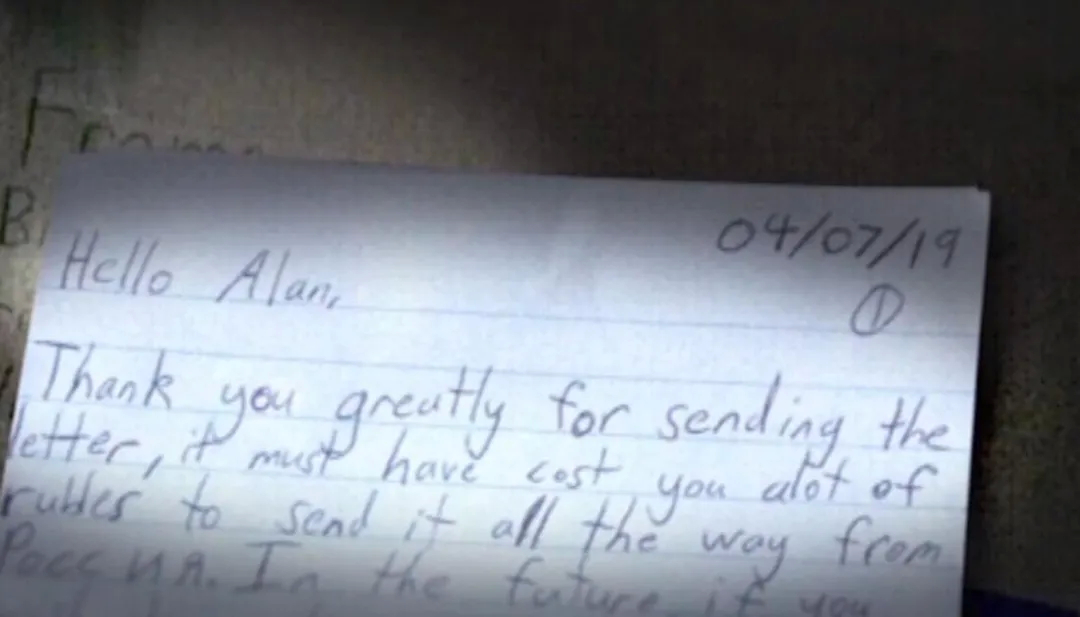 From
B
04/07/19
Hello Alan,
①
Thank you greatly for sending the
letter, it must have cost you alot of
rubles to send it all the way from
Росс ИЯ. In the future if you